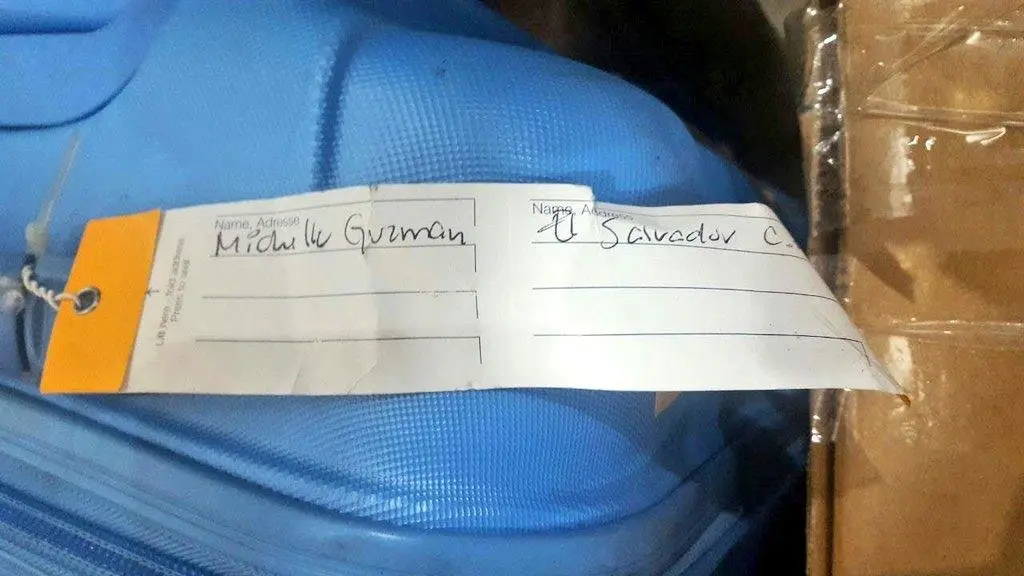 Name, Adresse
Michelle Guzman
Name, Address
El Salvador C.
Lift here, fold address
Press to seal